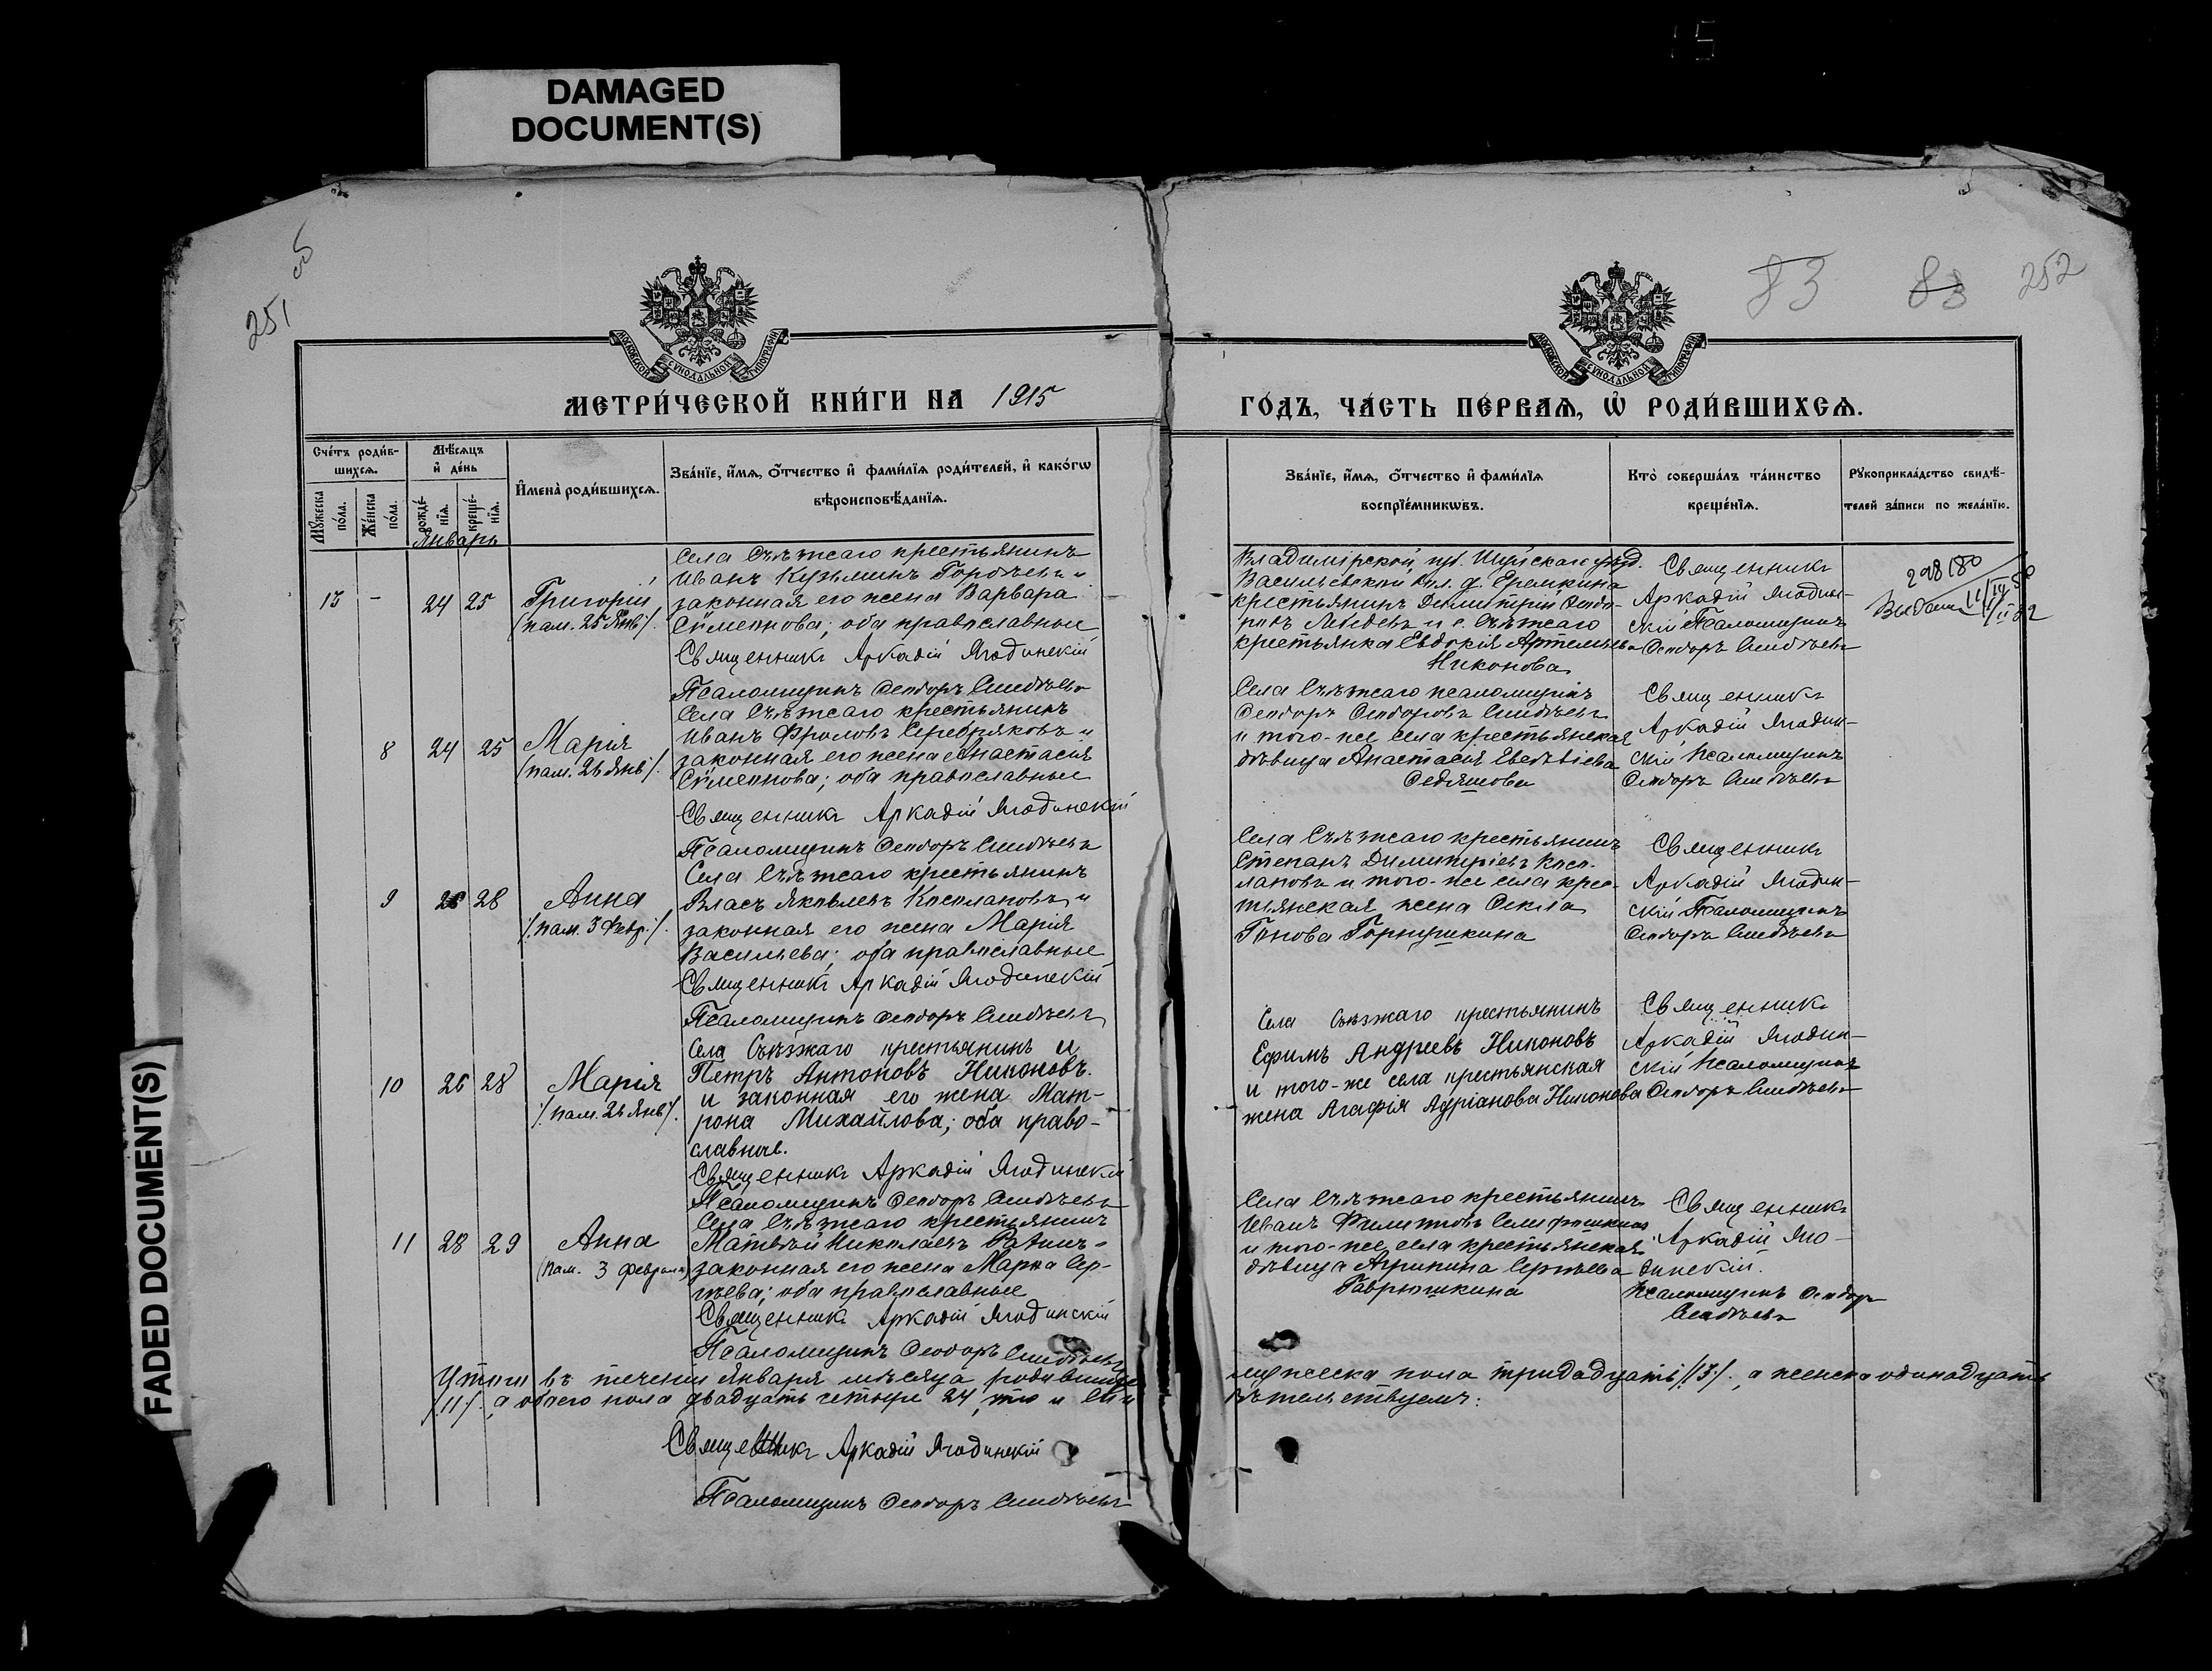 DAMAGED
DOCUMENT(S)
FADED DOCUMENT(S)
251
83 83 252
МОСКОВСКОЙ СѴНОДАЛЬНОЙ ТИПОГРАФІИ
МОСКОВСКОЙ СѴНОДАЛЬНОЙ ТИПОГРАФІИ
МЕТРИ́ЧЕСКОЙ КНИ́ГИ НА 1915
ГО́ДЪ, ЧА́СТЬ ПЕ́РВАѦ, Ѡ҆ РОДИ́ВШИХСѦ.
Сче́тъ роди́в-
шихсѧ.
Мꙋ́жеска по́ла.
Же́нска по́ла.
Мѣ́сѧцъ
и҆ де́нь
рожде́-
нїѧ.
креще́-
нїѧ.
И҆мена̀ роди́вшихсѧ.
Зва́нїе, и҆́мѧ, ѻ҆́тчество и҆ фами́лїѧ роди́телей, и҆ како́гѡ
вѣроисповѣ́данїѧ.
Зва́нїе, и҆́мѧ, ѻ҆́тчество и҆ фами́лїѧ
воспрїе́мникѡвъ.
Кто̀ соверша́лъ та́инство
креще́нїѧ.
Рꙋкоприкла́дство свидѣ́-
телей за́писи по жела́нїю.
Январь
13 - 24 25 Григорій
/пам. 25 Янв./.
Села Съѣзжаго крестьянинъ
Иванъ Кузьминъ и
законная его жена Варвара
Сѵмеонова; оба православные
Священникъ Аркадій Ягодинскій
Псаломщикъ Ѳеодоръ
Владимірской губ. Шуйскаго уѣзд.
Васильевской вол. д.
крестьянинъ Димитрій Ѳеодо-
ровъ Лебедевъ и с. Съѣзжаго
крестьянка Евдокія Артемьева
Никонова
Священникъ
Аркадій Ягодин-
скій Псаломщикъ
Ѳеодоръ
298180
8 24 25 Марія
/пам. 26 Янв./.
Села Съѣзжаго крестьянинъ
Иванъ Фроловъ Серебряковъ и
законная его жена Анастасія
Сѵмеонова; оба православные
Священникъ Аркадій Ягодинскій
Псаломщикъ Ѳеодоръ
Села Съѣзжаго псаломщикъ
Ѳеодоръ Ѳеодоровъ
и того-же села крестьянская
дѣвица Анастасія
Священникъ
Аркадій Ягодин-
скій Псаломщикъ
Ѳеодоръ
9 28 Анна
/.пам. 3 Февр./.
Села Съѣзжаго крестьянинъ
Власъ Яковлевъ и
законная его жена Марія
Васильева; оба православные
Священникъ Аркадій Ягодинскій
Псаломщикъ Ѳеодоръ
Села Съѣзжаго крестьянинъ
Степанъ Димитріевъ
и того-же села крес-
тьянская жена
Священникъ
Аркадій Ягодин-
скій Псаломщикъ
Ѳеодоръ
10 26 28 Марія
/.пам. 26 Янв./.
Села Съѣзжаго крестьянинъ и
Петръ Антоновъ Никоновъ.
и законная его жена Мат-
рона Михайлова; оба право-
славные.
Священникъ Аркадій Ягодинскій
Псаломщикъ Ѳеодоръ
Села Съѣзжаго крестьянинъ
Ефимъ Андреевъ Никоновъ
и того-же села крестьянская
жена Агафія Адріанова Никонова
Священникъ
Аркадій Ягодин-
скій Псаломщикъ
Ѳеодоръ
11 28 29 Анна
(пам. 3 февраля)
Села Съѣзжаго крестьянинъ
Матвѣй Николаевъ
законная его жена Сер-
гѣева; оба православные
Священникъ Аркадій Ягодинскій
Псаломщикъ Ѳеодоръ
Села Съѣзжаго крестьянинъ
Иванъ Филипповъ
и того-же села крестьянская
дѣвица Агрипина Сергѣева
Гаврюшкина
Священникъ
Аркадій Яго-
динскій.
Псаломщикъ Ѳеодоръ
Итого въ теченіи Января мѣсяца родившихся мужеска пола тринадцать /13/., а женска одинадцать
/11/., а обоего пола двадцать четыре 24, то и сви-
дѣтельствуемъ:
Священникъ Аркадій Ягодинскій
Псаломщикъ Ѳеодоръ